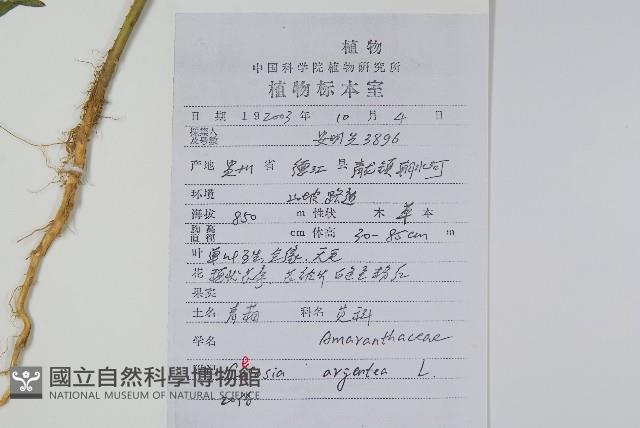 植物
中国科学院植物研究所
植物标本室
日期 19 2003 年 10 月 4 日
采集人及号数 安明先 3896
产地 贵州 省 德江 县 龙镇 朝水河
环境 山坡 路边
海拔 850 m 性状 木 草 本
胸高直径 cm 体高 30-85cm m
叶 单叶互生,全缘,无毛
花 穗状花序,花被片白色至粉红
果实
土名 青葙 科名 苋科
学名 Amaranthaceae
Celosia argentea L.
2018
國立自然科學博物館
NATIONAL MUSEUM OF NATURAL SCIENCE